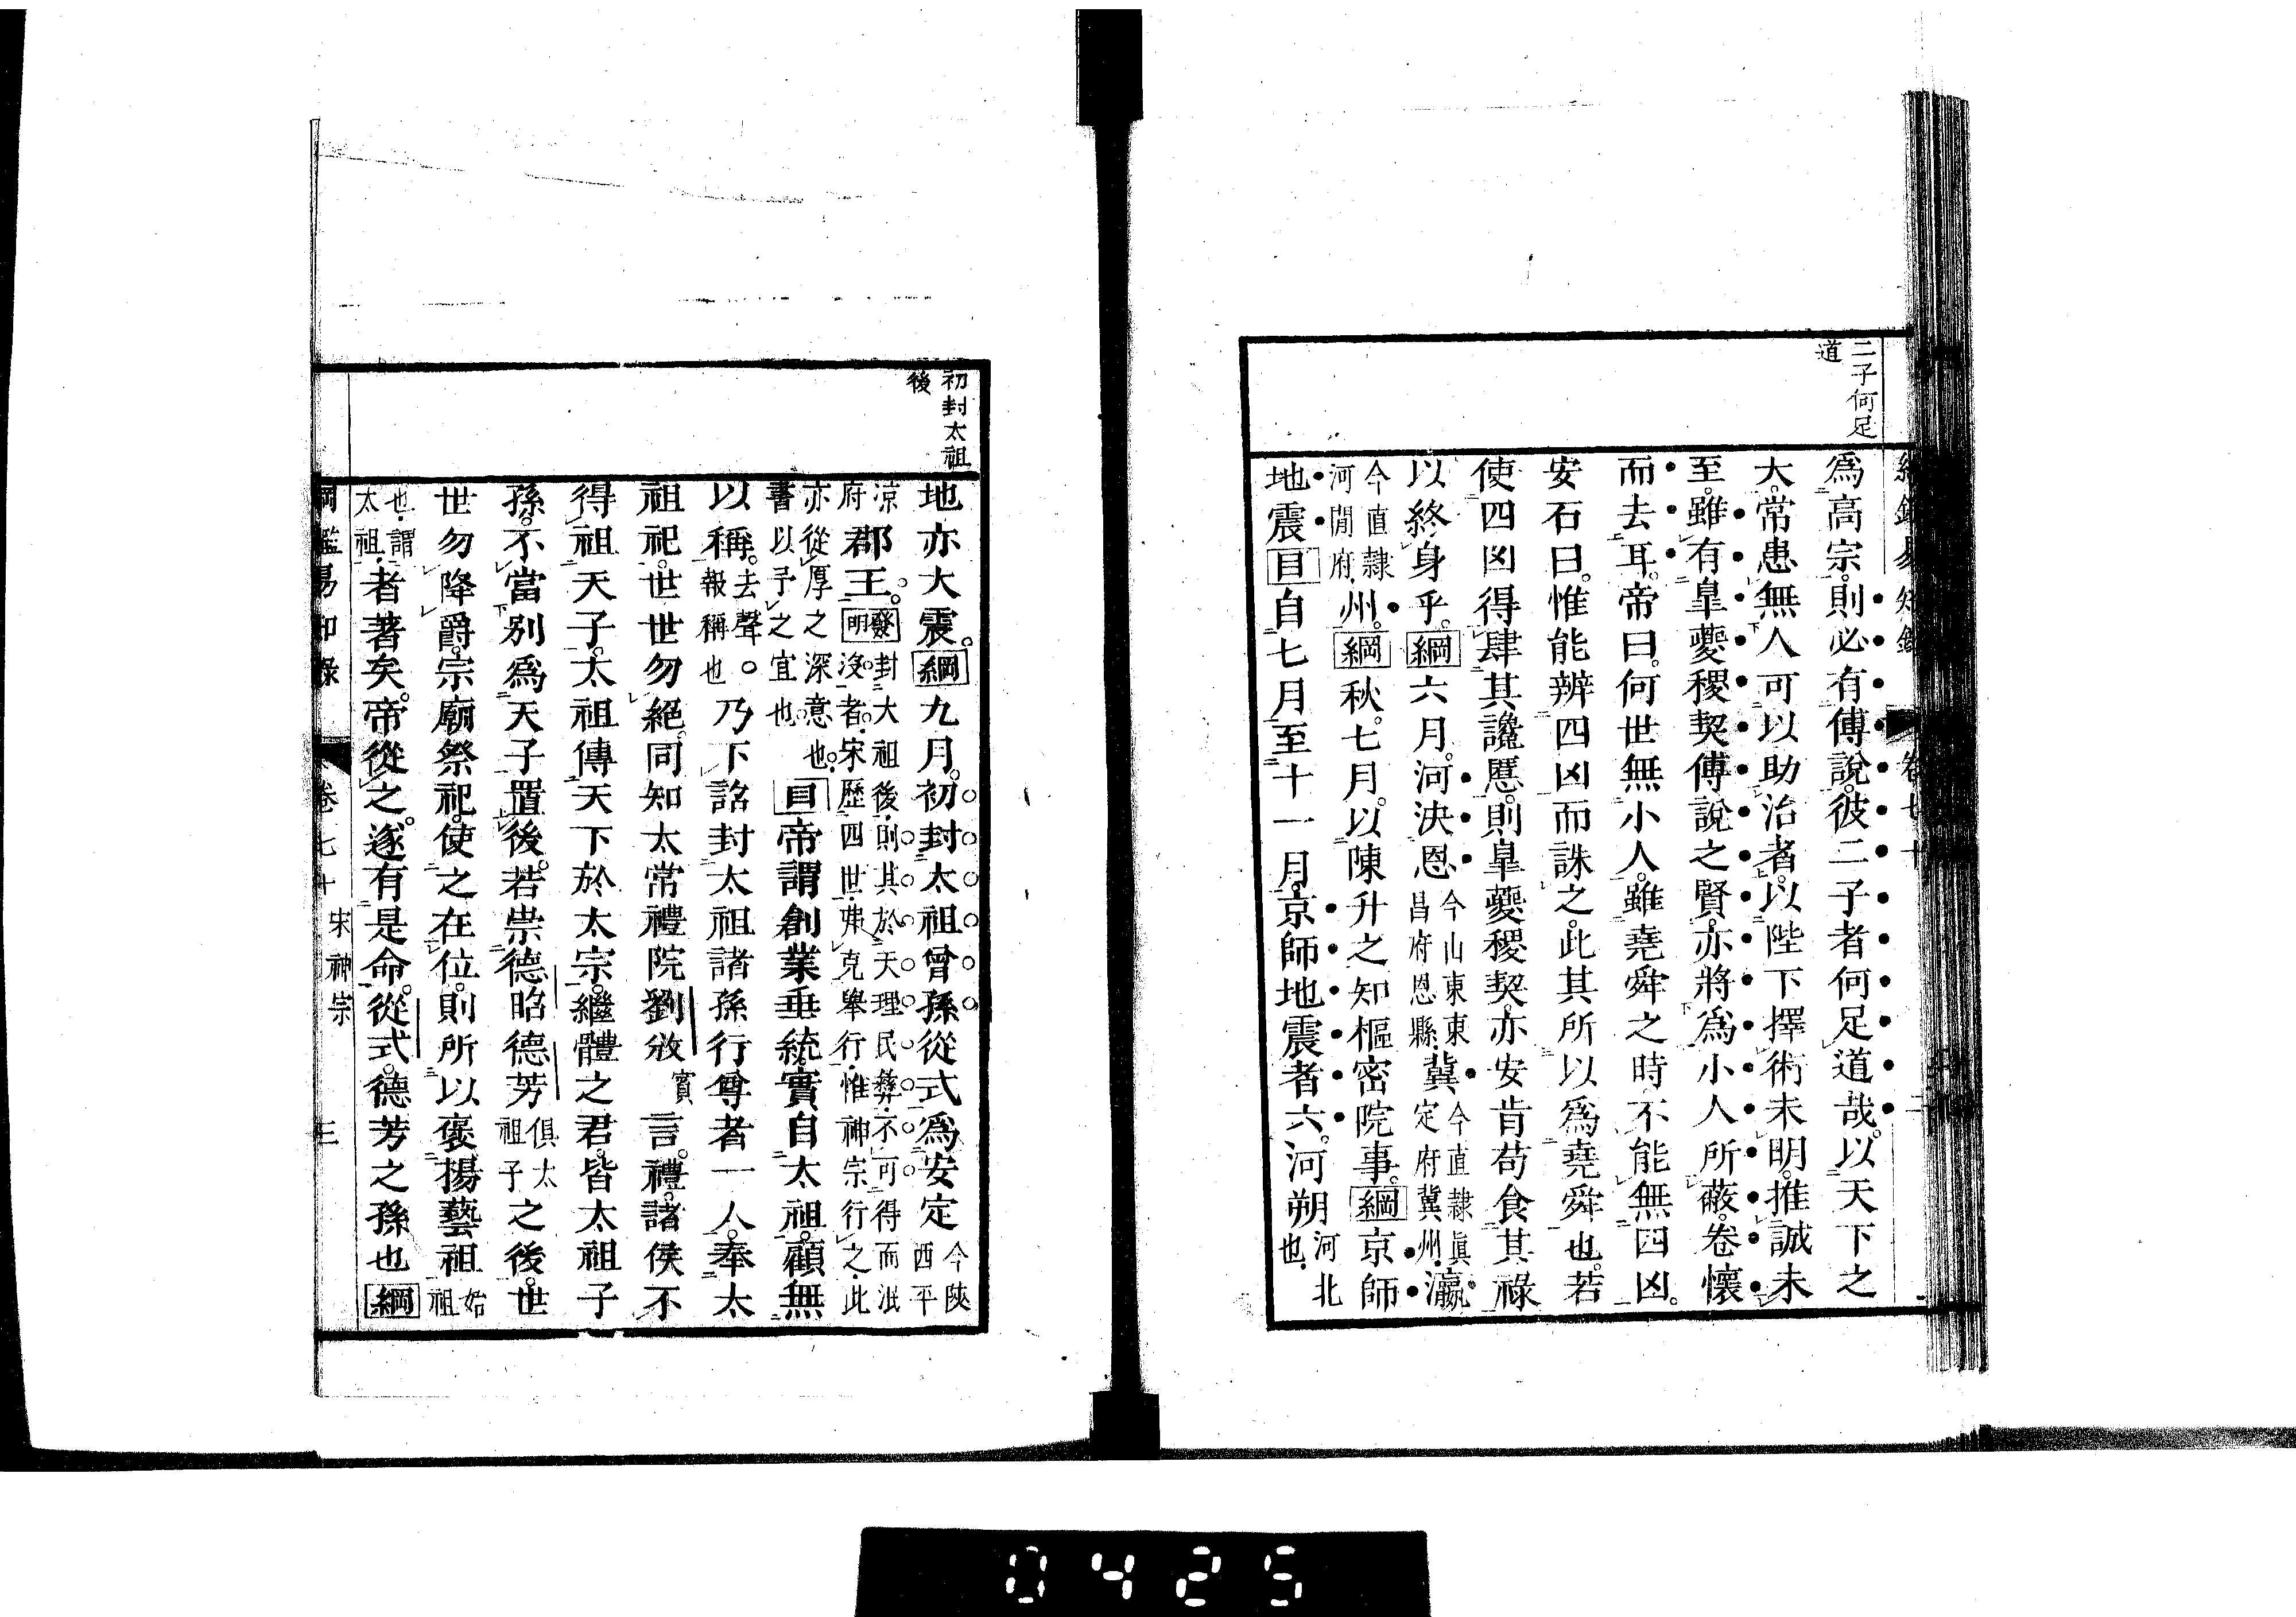 二子何足
道
爲高宗。則必有傅說。彼二子者何足道哉。以天下之
大。常患無人可以助治者。以陛下擇術未明。推誠未
至。雖有皐夔稷契傅說之賢。亦將爲小人所蔽。卷懷
而去耳。帝曰。何世無小人。雖堯舜之時不能無四凶。
安石曰。惟能辨四凶而誅之。此其所以爲堯舜也。若
使四凶得肆其讒慝。則皐夔稷契。亦安肯苟食其祿
以終身乎。綱六月。河決恩今山東東昌府恩縣.冀今直隸眞定府冀州.瀛
今直隸河閒府.州。綱秋七月。以陳升之知樞密院事。綱京師
地震目自七月至十一月。京師地震者六。河朔河北也.
初封太祖
後
地亦大震。綱九月。初封太祖曾孫從式爲安定今陝西平
凉府郡王。發明封大祖後.則其於天理民彝.不可得而泯沒者.宋歷四世.弗克舉行.惟神宗行之.此
亦從厚之深意也.書以予之宜也目帝謂創業垂統。實自太祖。顧無
以稱。去聲。報稱也乃下詔封太祖諸孫行尊者一人。奉太
祖祀。世世勿絕。同知太常禮院劉攽賓言。禮。諸侯不
得祖天子。太祖傳天下於太宗。繼體之君。皆太祖子
孫。不當別爲天子置後。若崇德昭德芳俱太祖子之後。世
世勿降爵。宗廟祭祀。使之在位。則所以褒揚藝祖始祖
也.謂太祖.者著矣。帝從之。遂有是命。從式。德芳之孫也綱
綱鑑易知錄 卷七十 宋神宗 三
0425